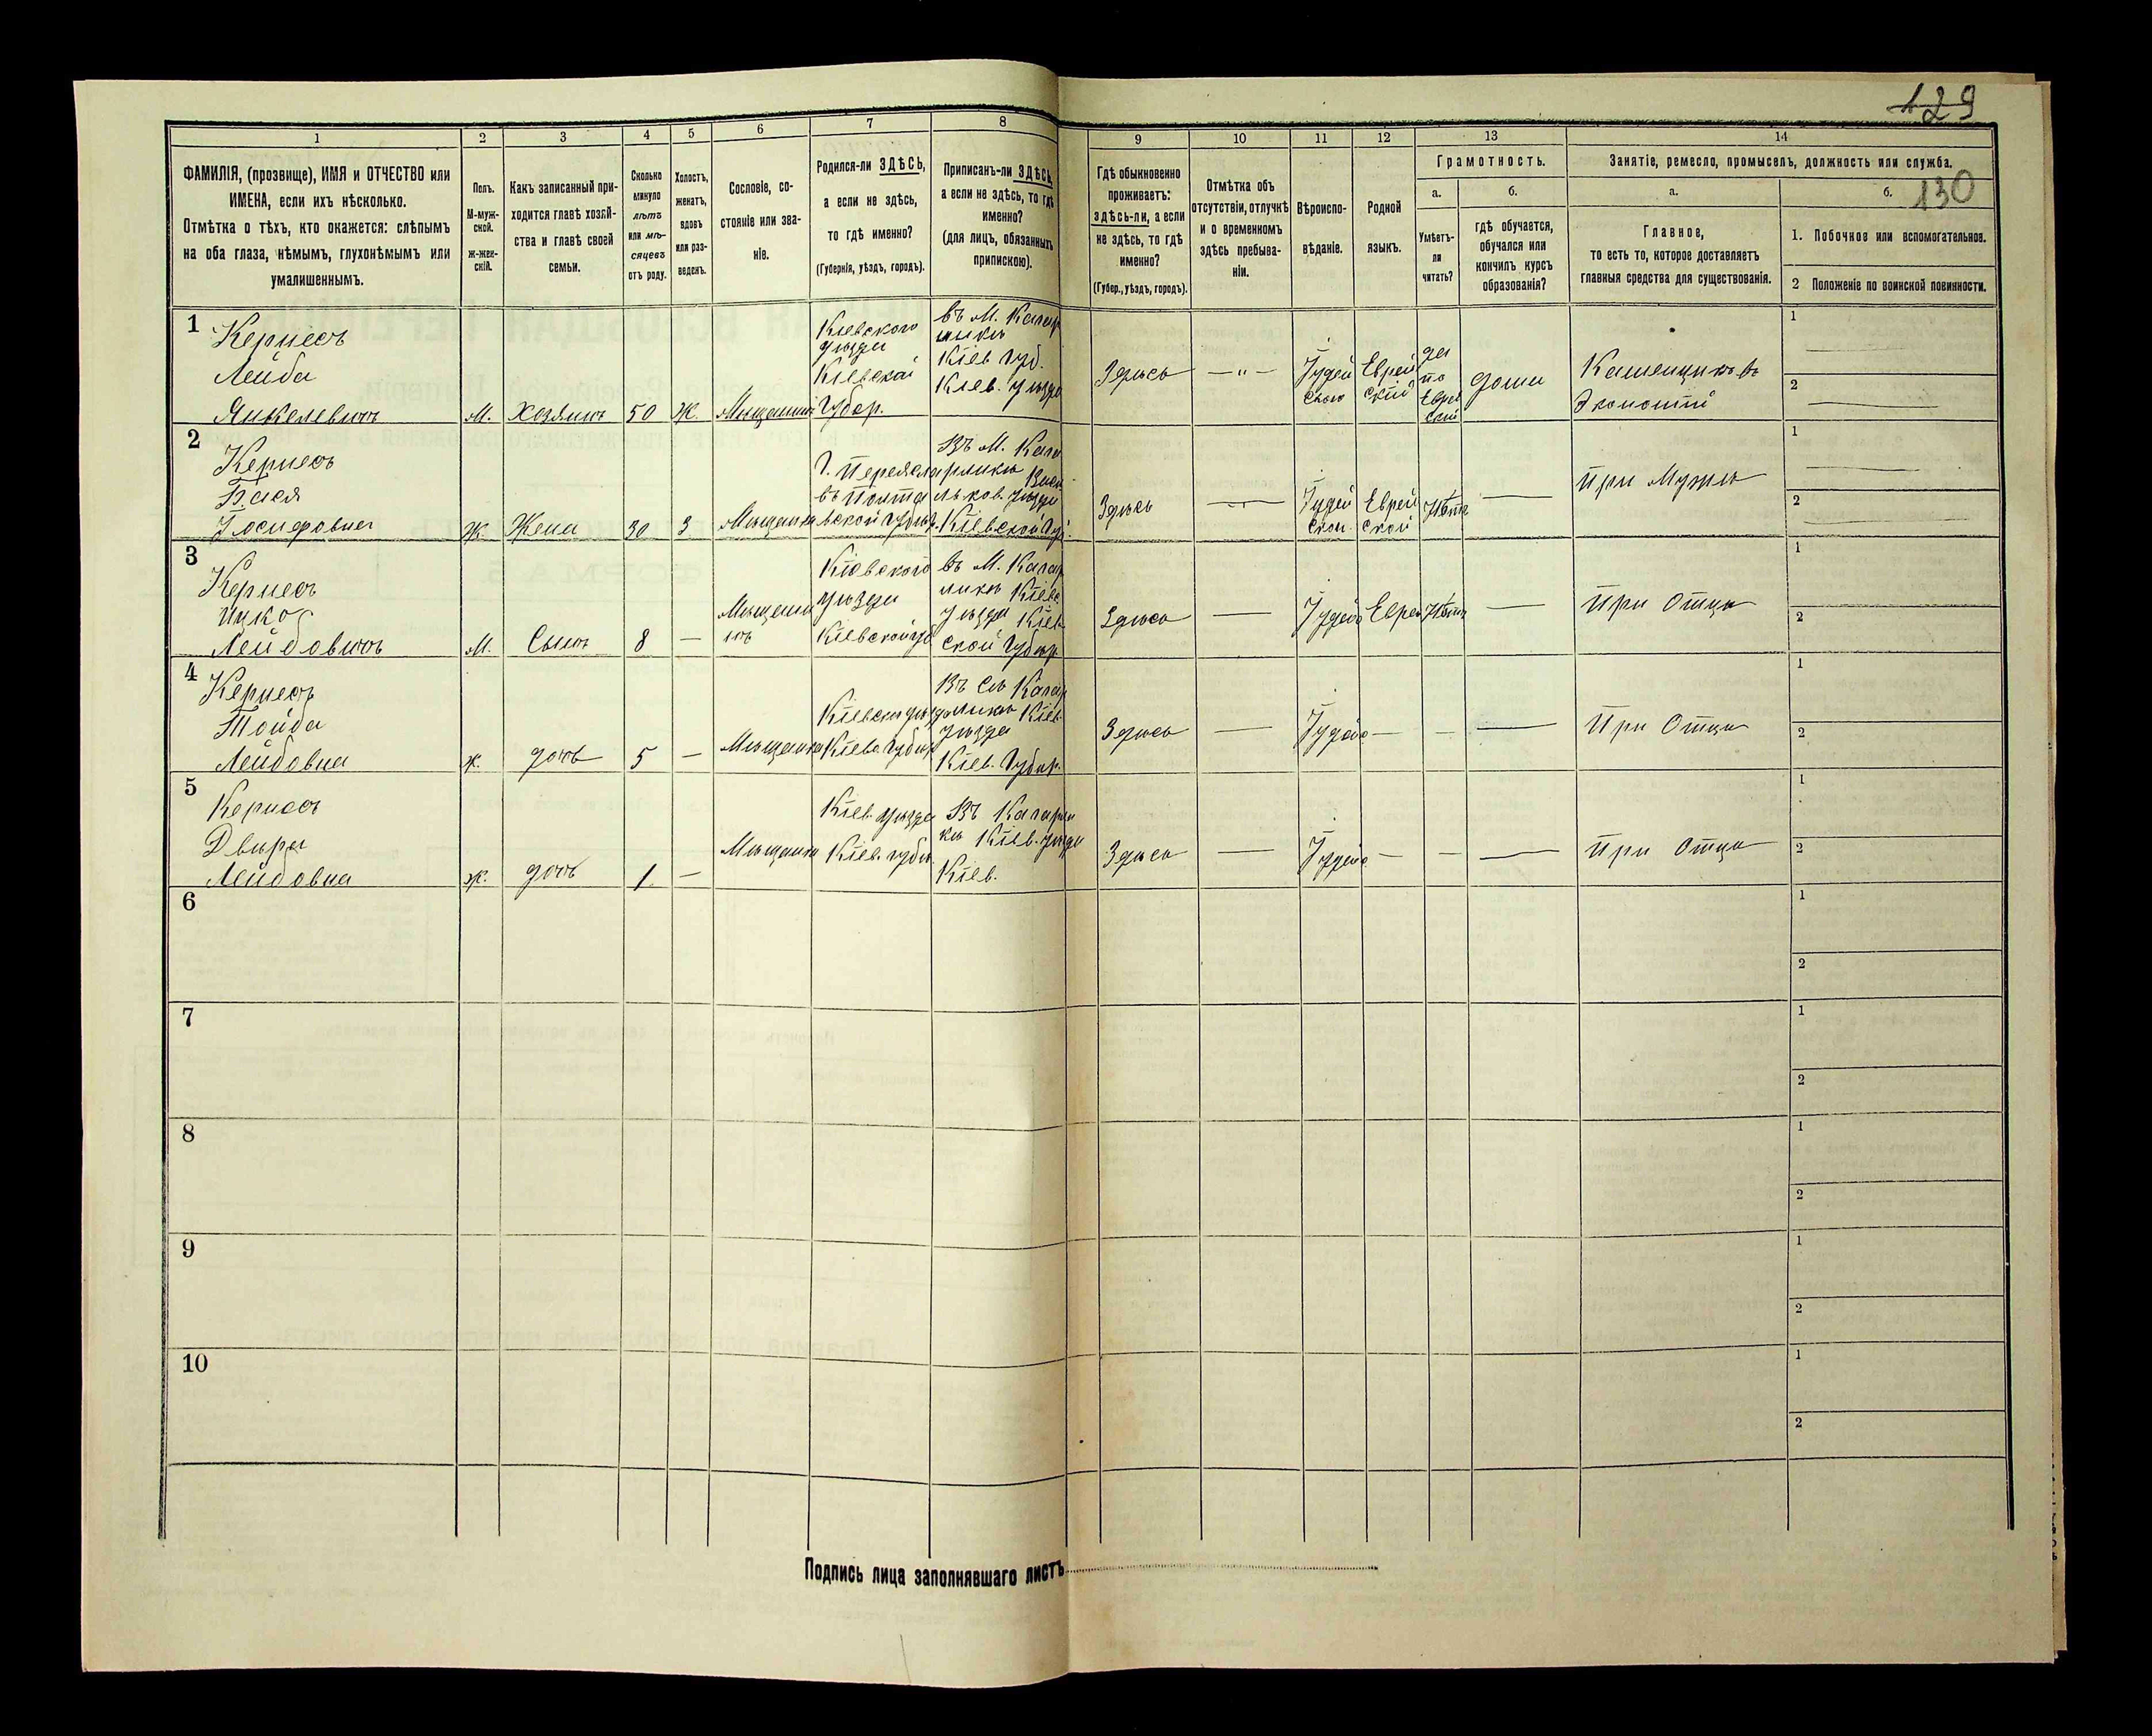 129
130
1
2
3
4
5
6
7
8
9
10
11
12
13
14
ФАМИЛІЯ, (прозвище), ИМЯ и ОТЧЕСТВО или
ИМЕНА, если ихъ нѣсколько.
Отмѣтка о тѣхъ, кто окажется: слѣпымъ
на оба глаза, нѣмымъ, глухонѣмымъ или
умалишеннымъ.
Полъ.
М-муж-
ской.
Ж-жен-
скій.
Какъ записанный при-
ходится главѣ хозяй-
ства и главѣ своей
семьи.
Сколько
минуло
лѣтъ
или мѣ-
сяцевъ
отъ роду.
Холостъ,
женатъ,
вдовъ
или раз-
веденъ.
Сословіе, со-
стояніе или зва-
ніе.
Родился-ли ЗДѢСЬ,
а если не здѣсь,
то гдѣ именно?
(Губернія, уѣздъ, городъ).
Приписанъ-ли ЗДѢСЬ,
а если не здѣсь, то гдѣ
именно?
(для лицъ, обязанныхъ
припискою).
Гдѣ обыкновенно
проживаетъ:
здѣсь-ли, а если
не здѣсь, то гдѣ
именно?
(Губер., уѣздъ, городъ).
Отмѣтка объ
отсутствіи, отлучкѣ
и о временномъ
здѣсь пребыва-
ніи.
Вѣроиспо-
вѣданіе.
Родной
языкъ.
Грамотность.
а.
Умѣетъ-
ли
читать?
б.
гдѣ обучается,
обучался или
кончилъ курсъ
образованія?
Занятіе, ремесло, промыселъ, должность или служба.
а.
Главное,
то есть то, которое доставляетъ
главныя средства для существованія.
б.
1. Побочное или вспомогательное.
2 Положеніе по воинской повинности.
1
Кернесъ
Лейба
Янкелевичъ
М.
хозяинъ
50
Ж.
Мѣщанинъ
Кіевского
уѣзда
Кіевской
Губер.
въ М. Кагар
ликѣ
Кіев. Губ.
Кіев. уѣзда
Здѣсь
— " —
Іудей
ского
Еврей
скій
да
по
Еврей
ский
дома
Каменщикъ въ
Экономіи
1
2
2
Кернесъ
Бася
Іосифовна
Ж.
Жена
30
З
Мѣщанка
Г. Переясла
въ Полта
вской Губер.
Въ М. Кага
рликѣ
уѣзда
Кіевской Губ.
Здѣсь
—
Іудей
ской
Еврей
ской
Нѣтъ
—
При Мужѣ
1
2
3
Кернесъ
Ицко
Лейбовичъ
М.
Сынъ
8
—
Мѣщани
нъ
Кіевского
уѣзда
Кіевской губ
въ М. Кагар
ликѣ Кіевс.
уѣзда Кіев
ской Губер.
Здѣсь
—
Іудейс
Еврей
Нѣтъ
—
При Отцѣ
1
2
4
Кернесъ
Тойба
Лейбовна
ж.
дочь
5
—
Мѣщанка
Кіевск. уѣзда
Кіевс. Губер
Въ Кагар
ликѣ Кіев.
уѣзда
Кіев. Губер.
Здѣсь
—
Іудейс
—
—
—
При Отцѣ
1
2
5
Кернесъ
Двыра
Лейбовна
ж.
дочь
1.
—
Мѣщанка
Кіев. уѣзда
Кіев. губер.
Въ Кагарли
кѣ Кіев. уѣзда
Кіев.
Здѣсь
—
Іудейс
—
—
—
При Отцѣ
1
2
6
1
2
7
1
2
8
1
2
9
1
2
10
1
2
Подпись лица заполнявшаго листъ